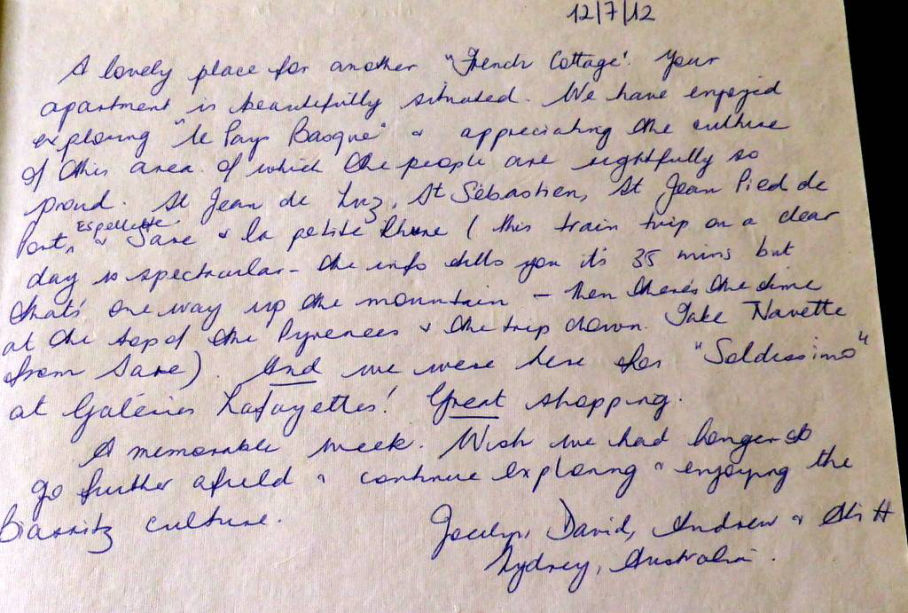 12/7/12
A lovely place for another "French Cottage'. Your
apartment is beautifully situated. We have enjoyed
exploring "le Pays Basque" & appreciating the culture
of this area of which the people are rightfully so
proud. St Jean de Luz, St Sébastien, St Jean Pied de
Espellette
Port, & Sare & la petite Rhune (this train trip on a clear
day is spectacular - the info tells you it's 35 mins but
that's one way up the mountain - then there's the time
at the top of the Pyrenees & the trip down. Take Navette
from Sare). And we were here for "Soldissimo"
at Galéries Lafayettes! Great shopping.
A memorable week. Wish we had longer to
go further afield & continue exploring & enjoying the
Biarritz culture.
Jocelyn, David, Andrew & Ali H
Sydney, Australia.